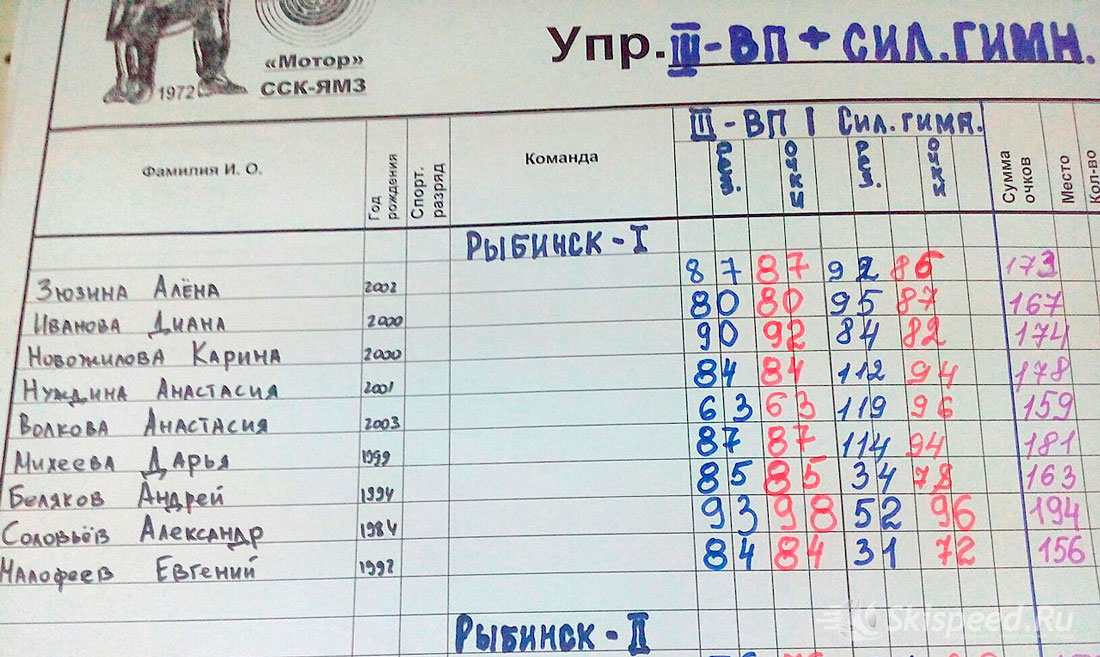 Упр. III-ВП + СИЛ.ГИМН.
«Мотор»
1972 ССК-ЯМЗ
III - ВП | Сил.гимн.
Фамилия И. О. Год рождения Спорт. разряд Команда рез. очки рез. очки Сумма очков Место Кол-во
Рыбинск - I
Зюзина Алёна 2002 87 87 92 86 173
Иванова Диана 2000 80 80 95 87 167
Новожилова Карина 2000 90 92 84 82 174
Нуждина Анастасия 2001 84 84 112 94 178
Волкова Анастасия 2003 63 63 119 96 159
Михеева Дарья 1999 87 87 114 94 181
Беляков Андрей 1994 85 85 34 78 163
Соловьёв Александр 1984 93 98 52 96 194
Малофеев Евгений 1992 84 84 31 72 156
Рыбинск - II
Skispeed.Ru